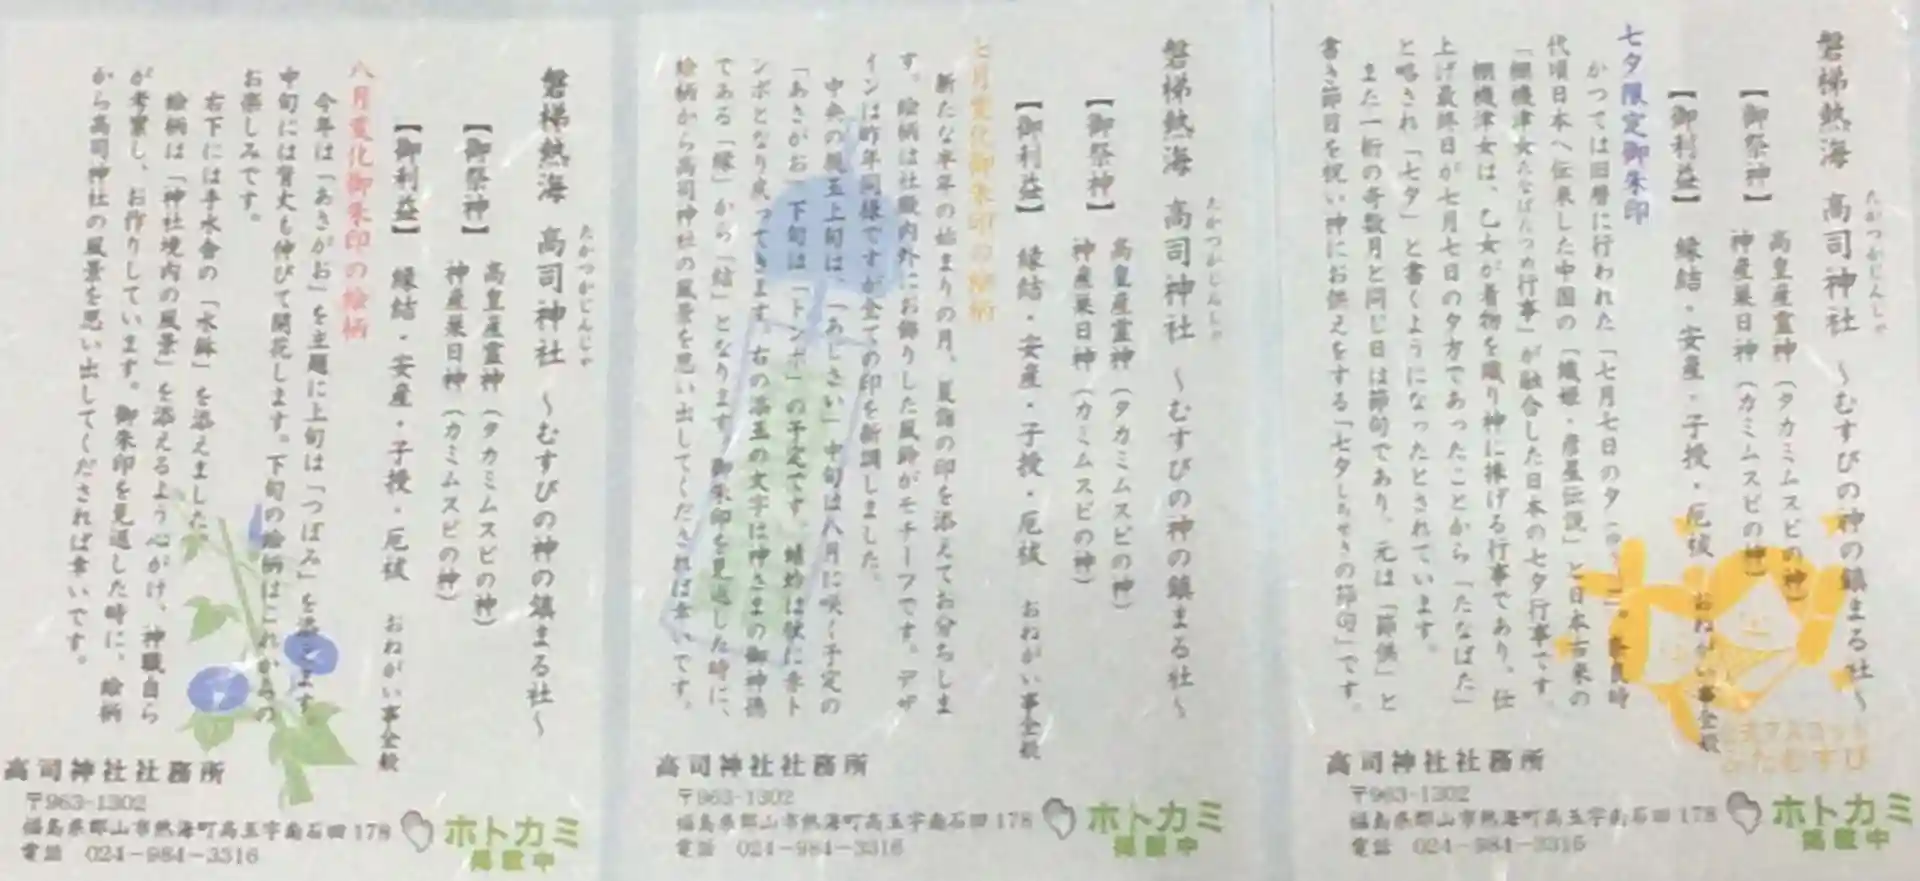 磐梯熱海 高司神社 ～むすびの神の鎮まる社～
たかつかじんじゃ
【御祭神】 高皇産霊神（タカミムスビの神）
神産巣日神（カミムスビの神）
【御利益】 縁結・安産・子授・厄祓 おねがい事全般
七夕限定御朱印
かつては旧暦に行われた「七月七日の夕
奈良時
代頃日本へ伝来した中国の「織姫・彦星伝説」と日本古来の
「棚機津女たなばたつめ行事」が融合した日本の七夕行事です。
棚機津女は、乙女が着物を織り神に捧げる行事であり、仕
上げ最終日が七月七日の夕方であったことから「たなばた」
と略され「七夕」と書くようになったとされています。
また一桁の奇数月と同じ日は節句であり、元は「節供」と
書き節目を祝い神にお供えをする「七夕しちせきの節句」です。
むすび
高司神社社務所
〒963-1302
福島県郡山市熱海町高玉字南石田178
電話 024-984-3316
ホトカミ
掲載中
磐梯熱海 高司神社 ～むすびの神の鎮まる社～
たかつかじんじゃ
【御祭神】 高皇産霊神（タカミムスビの神）
神産巣日神（カミムスビの神）
【御利益】 縁結・安産・子授・厄祓 おねがい事全般
七月変化御朱印の絵柄
新たな半年の始まりの月。夏詣の印を添えてお分ちしま
す。絵柄は社殿内外にお飾りした風鈴がモチーフです。デザ
インは昨年同様ですが全ての印を新調しました。
中央の風玉上旬は、「あじさい」中旬は八月に咲く予定の
「あさがお」下旬は「トンボ」の予定です。蜻蛉は秋に赤ト
ンボとなり戻ってきます。右の添玉の文字は神さまの御神徳
である「縁」から「結」となります。御朱印を見返した時に、
絵柄から高司神社の風景を思い出してくだされば幸いです。
高司神社社務所
〒963-1302
福島県郡山市熱海町高玉字南石田178
電話 024-984-3316
ホトカミ
掲載中
磐梯熱海 高司神社 ～むすびの神の鎮まる社～
たかつかじんじゃ
【御祭神】 高皇産霊神（タカミムスビの神）
神産巣日神（カミムスビの神）
【御利益】 縁結・安産・子授・厄祓 おねがい事全般
八月変化御朱印の絵柄
今年は「あさがお」を主題に上旬は「つぼみ」を添えます。
中旬には背丈も伸びて開花します。下旬の絵柄はこれからの
お楽しみです。
右下には手水舎の「水鉢」を添えました。
絵柄は「神社境内の風景」を添えるよう心がけ、神職自ら
が考案し、お作りしています。御朱印を見返した時に、絵柄
から高司神社の風景を思い出してくだされば幸いです。
高司神社社務所
〒963-1302
福島県郡山市熱海町高玉字南石田178
電話 024-984-3316
ホトカミ
掲載中